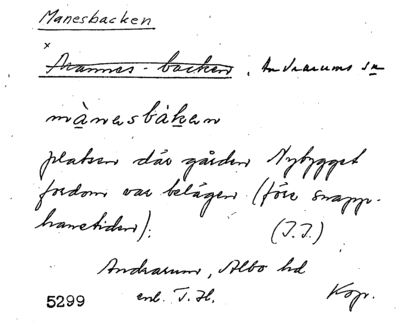 Manesbacken
x
Mannes-backen, Andrarums sn
mànasbáken
platsen där gården Nybygget
fordom var belägen (före snapp-
hanetiden). (J.J.)
Andrarum, Albo hd
enl. T.H. Kop.
5299